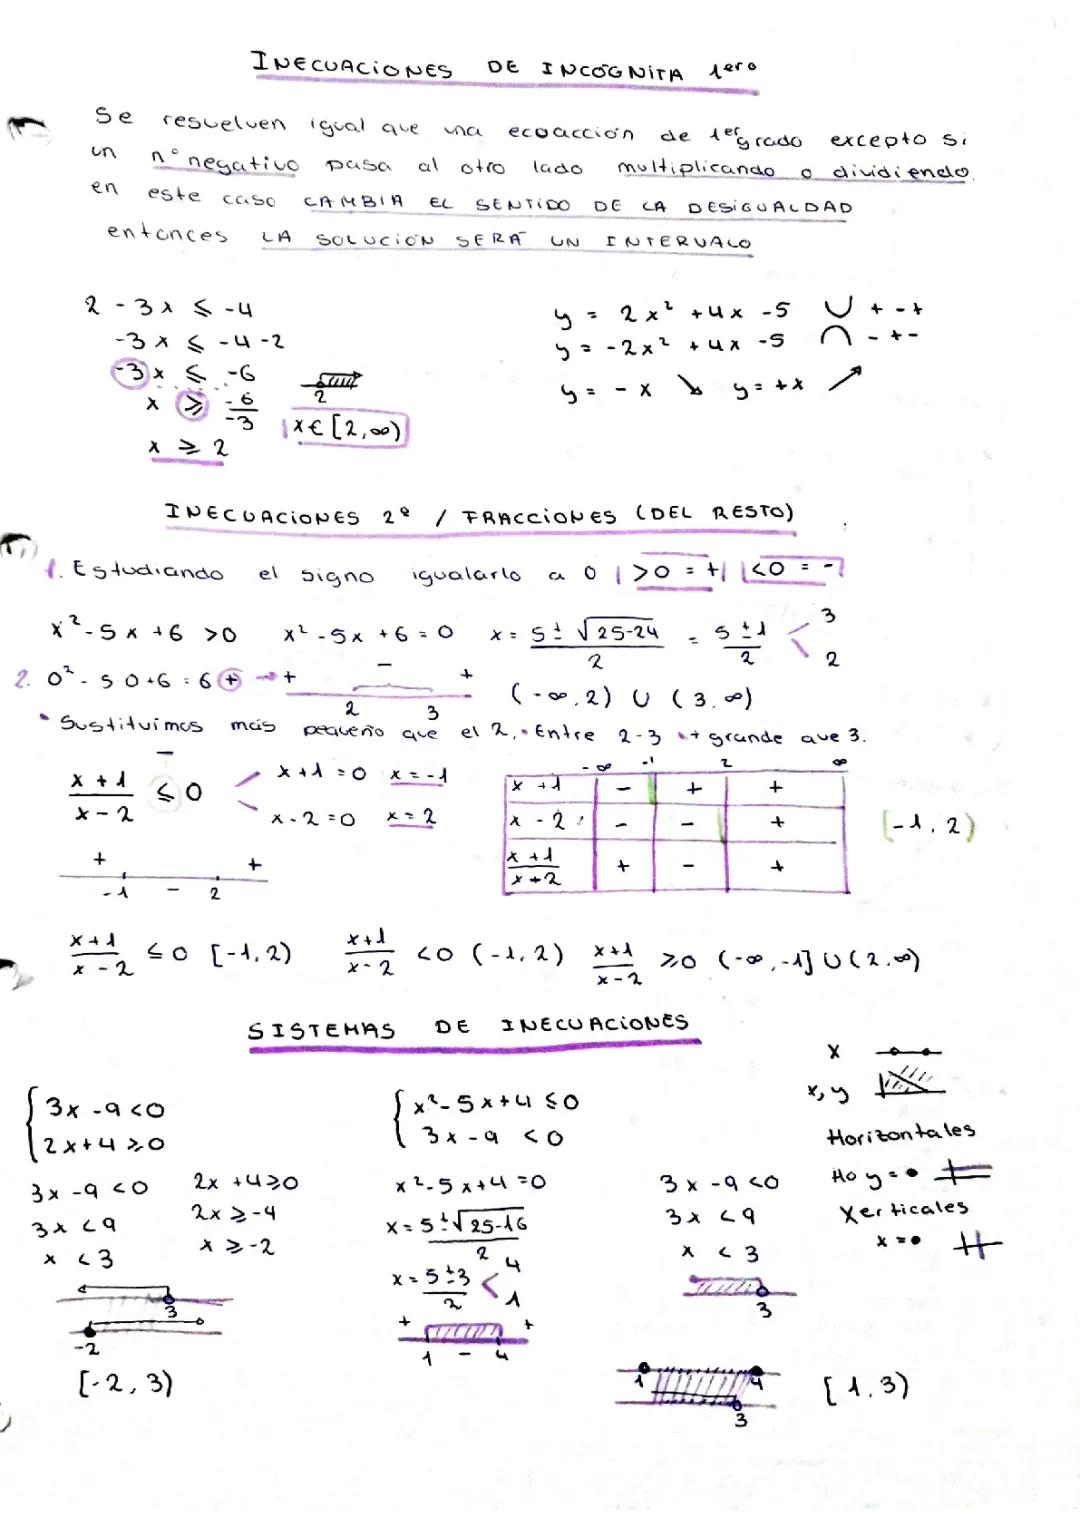 INECUACIONES DE INCÓGNITA 1ero
Se resuelven igual que una ecoacción de 1er grado excepto si
un nº negativo pasa al otro lado multiplicando o dividiendo.
en este caso CAMBIA EL SENTIDO DE LA DESIGUALDAD
entonces LA SOLUCIÓN SERÁ UN INTERVALO
2 - 3x ≤ -4
-3x ≤ -4 -2
-3x ≤ -6
x ≥ -6/-3
x ≥ 2
2
x ∈ [2,∞)
y = 2x² + 4x - 5 ∪ + - +
y = -2x² + 4x - 5 ∩ - + -
y = -x ↘ y = +x ↗
INECUACIONES 2º / FRACCIONES (DEL RESTO)
1. Estudiando el signo igualarlo a 0 | >0 = + | <0 = -
x² - 5x + 6 > 0 x² - 5x + 6 = 0 x = 5 ± √25-24 / 2 = 5 ± 1 / 2 < 3 2
2. 0² - 5·0 + 6 = 6 + → + - +
2 3
(-∞, 2) ∪ (3, ∞)
• Sustituimos más pequeño que el 2, • Entre 2-3 • + grande que 3.
-
x+1 / x-2 ≤ 0 < x+1 = 0 x = -1
x-2 = 0 x = 2
+ - +
-1 2
-∞ -1 2 ∞
x+1 - + +
x-2 - - +
x+1 / x+2 + - +
[-1, 2)
x+1 / x-2 ≤ 0 [-1, 2) x+1 / x-2 < 0 (-1, 2) x+1 / x-2 ≥ 0 (-∞, -1] ∪ (2, ∞)
SISTEMAS DE INECUACIONES
{ 3x - 9 < 0
2x + 4 ≥ 0
3x - 9 < 0 2x + 4 ≥ 0
3x < 9 2x ≥ -4
x < 3 x ≥ -2
3
-2
[-2, 3)
{ x² - 5x + 4 ≤ 0
3x - 9 < 0
x² - 5x + 4 = 0
x = 5 ± √25-16 / 2
x = 5 ± 3 / 2 < 4 1
+ - +
1 4
3x - 9 < 0
3x < 9
x < 3
3
1 4
3
[1, 3)
x
x, y
Horizontales
Ho y = •
Xerticales
x = •